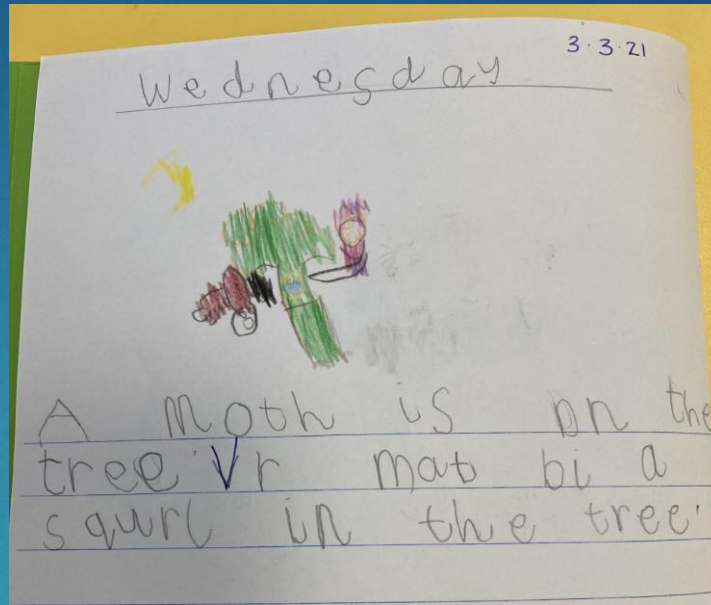 3.3.21
Wednesday
A moth is on the
tree. Vr mat bi a
squrl in the tree.